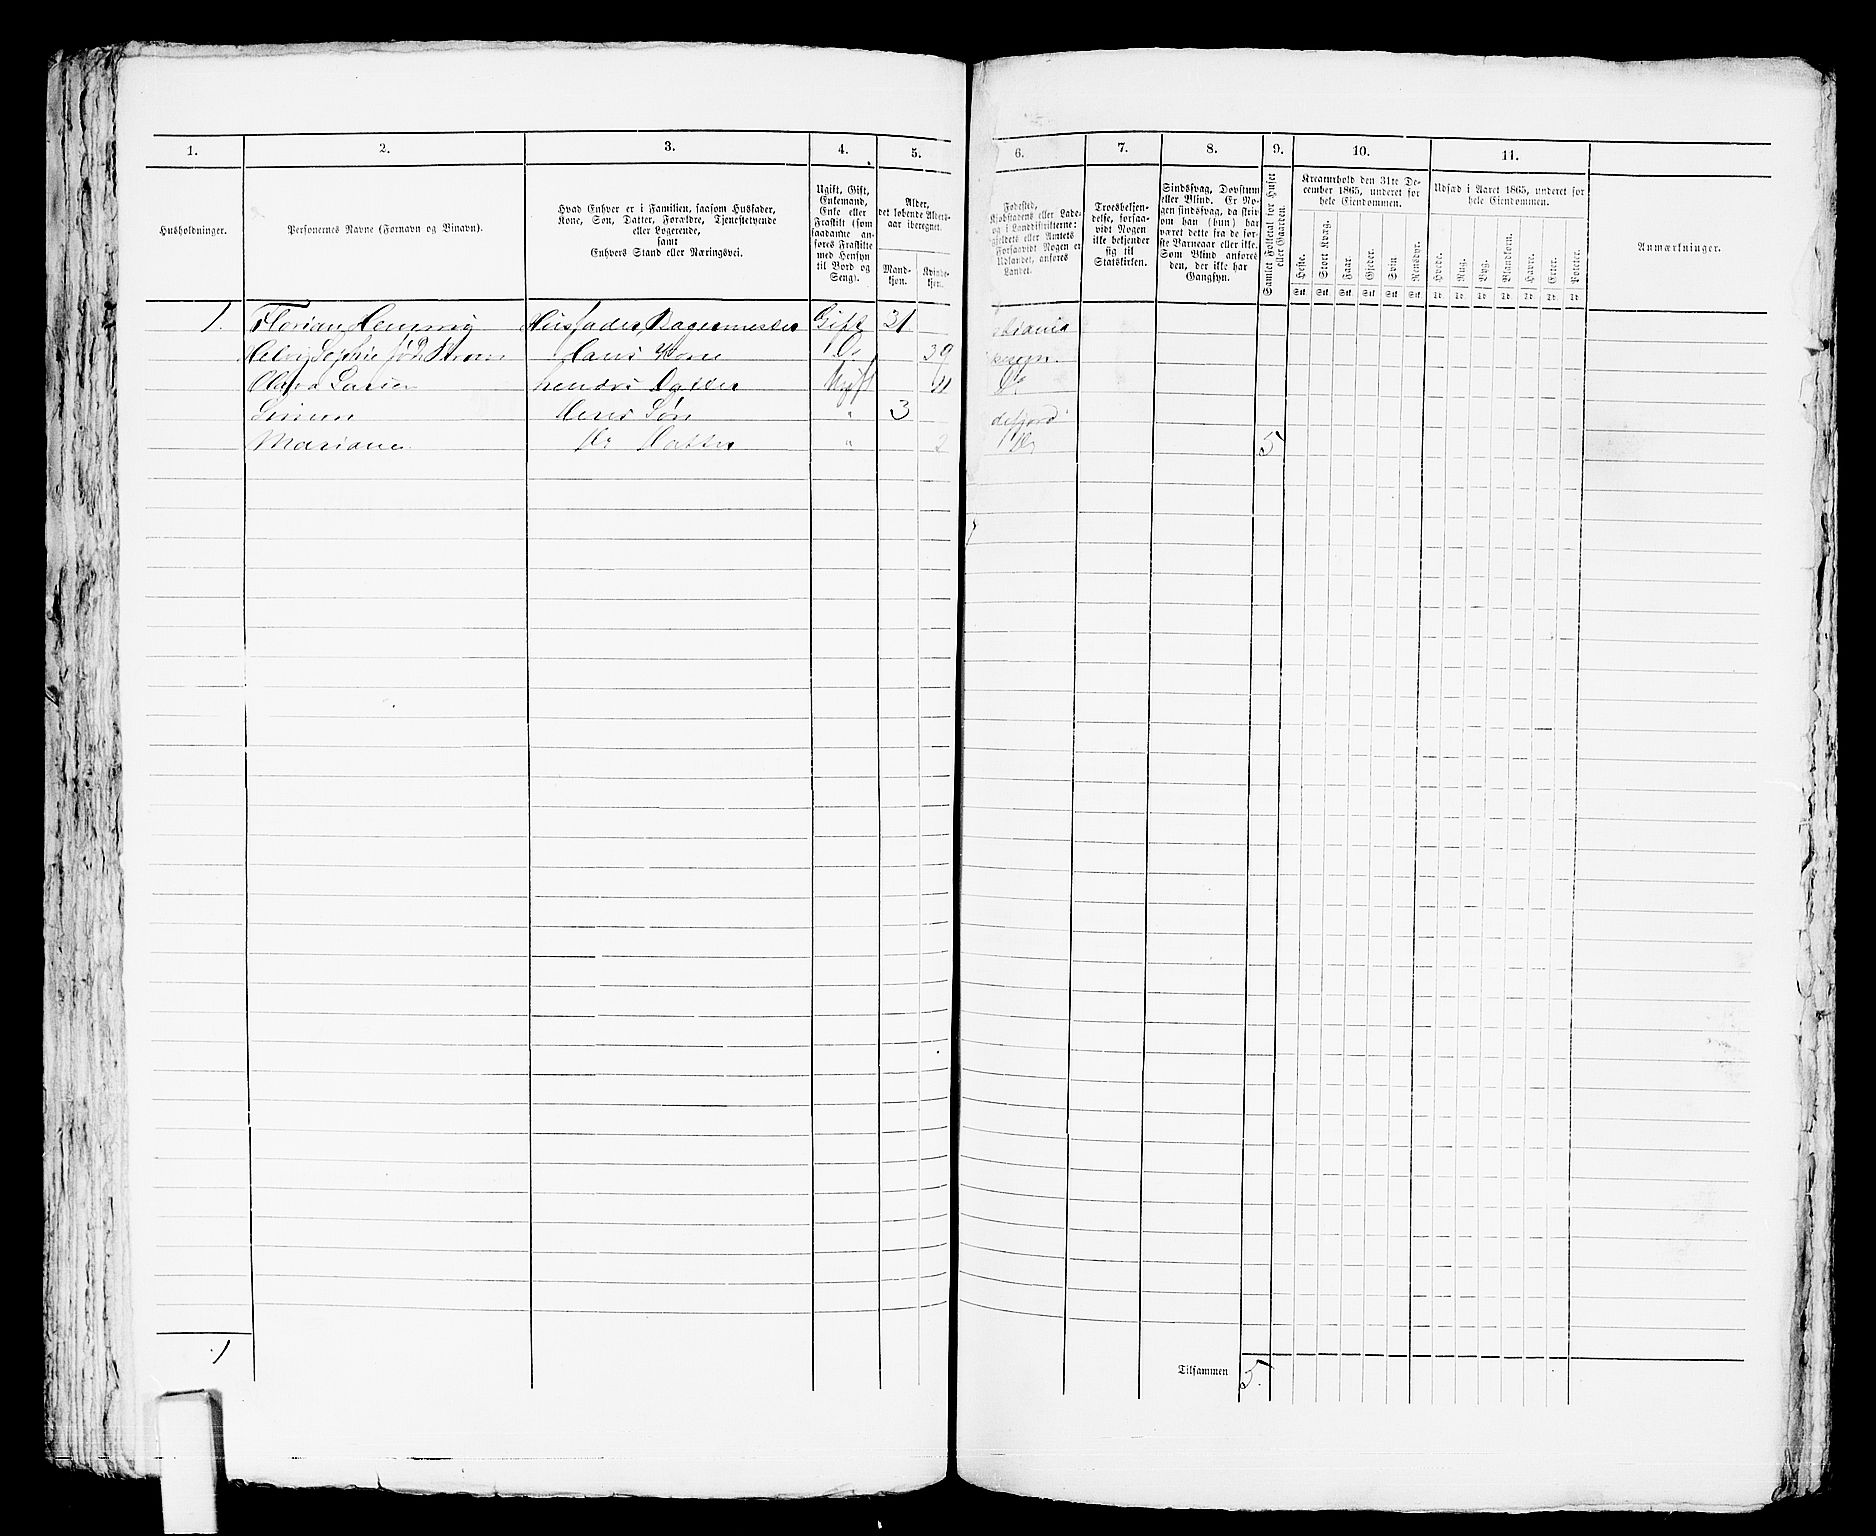 1.
2.
3.
4.
5.
Husholdninger.
Personernes Navne (Fornavn og Binavn).
Hvad Enhver er i Familien, saasom Husfader,
Kone, Søn, Datter, Forældre, Tjenestetyende
eller Logerende,
samt
Enhvers Stand eller Næringsvei.
Ugift, Gift,
Enkemand,
Enke eller
Fraskilt (som
saadanne an-
føres Fraskilte
med Hensyn
til Bord og
Seng).
Alder,
det løbende Alders-
aar iberegnet.
Mand-
kjøn.
Kvinde-
kjøn.
1. Florian Hennig Husfader, Bagermester Gift 31
Sophie Hans Kone Do 39
Olava Datter Ugift 11
Simen Søn " 3
Mariane Do Datter " 2
1
6.
7.
8.
9.
10.
11.
Fødested,
Kjøbstadens eller Lade-
Forsaavidt Nogen er
Udlandet, anføres
Landet.
Troesbekjen-
delse, forsaa-
vidt Nogen
ikke bekjender
sig til
Statskirken.
Sindssvag, Døvstum
eller Blind. Er No-
gen sindssvag, da skriv
om han (hun) har
været dette fra de før-
ste Barneaar eller ikke.
Som Blind anføres
den, der ikke har
Gangsyn.
Samlet Folketal for Huset
eller Gaarden.
Kreaturhold den 31te De-
cember 1865, underet for
hele Eiendommen.
Heste.
Stort Kvæg.
Faar.
Gjeder.
Svin.
Rensdyr.
Stk. Stk. Stk. Stk. Stk. Stk.
Udsæd i Aaret 1865, underet for
hele Eiendommen.
Hvede.
Rug.
Byg.
Blandkorn.
Havre.
Erter.
Poteter.
Td. Td. Td. Td. Td. Td. Td.
Anmærkninger.
stiania
Do
defjord
Do 5
Tilsammen 5.